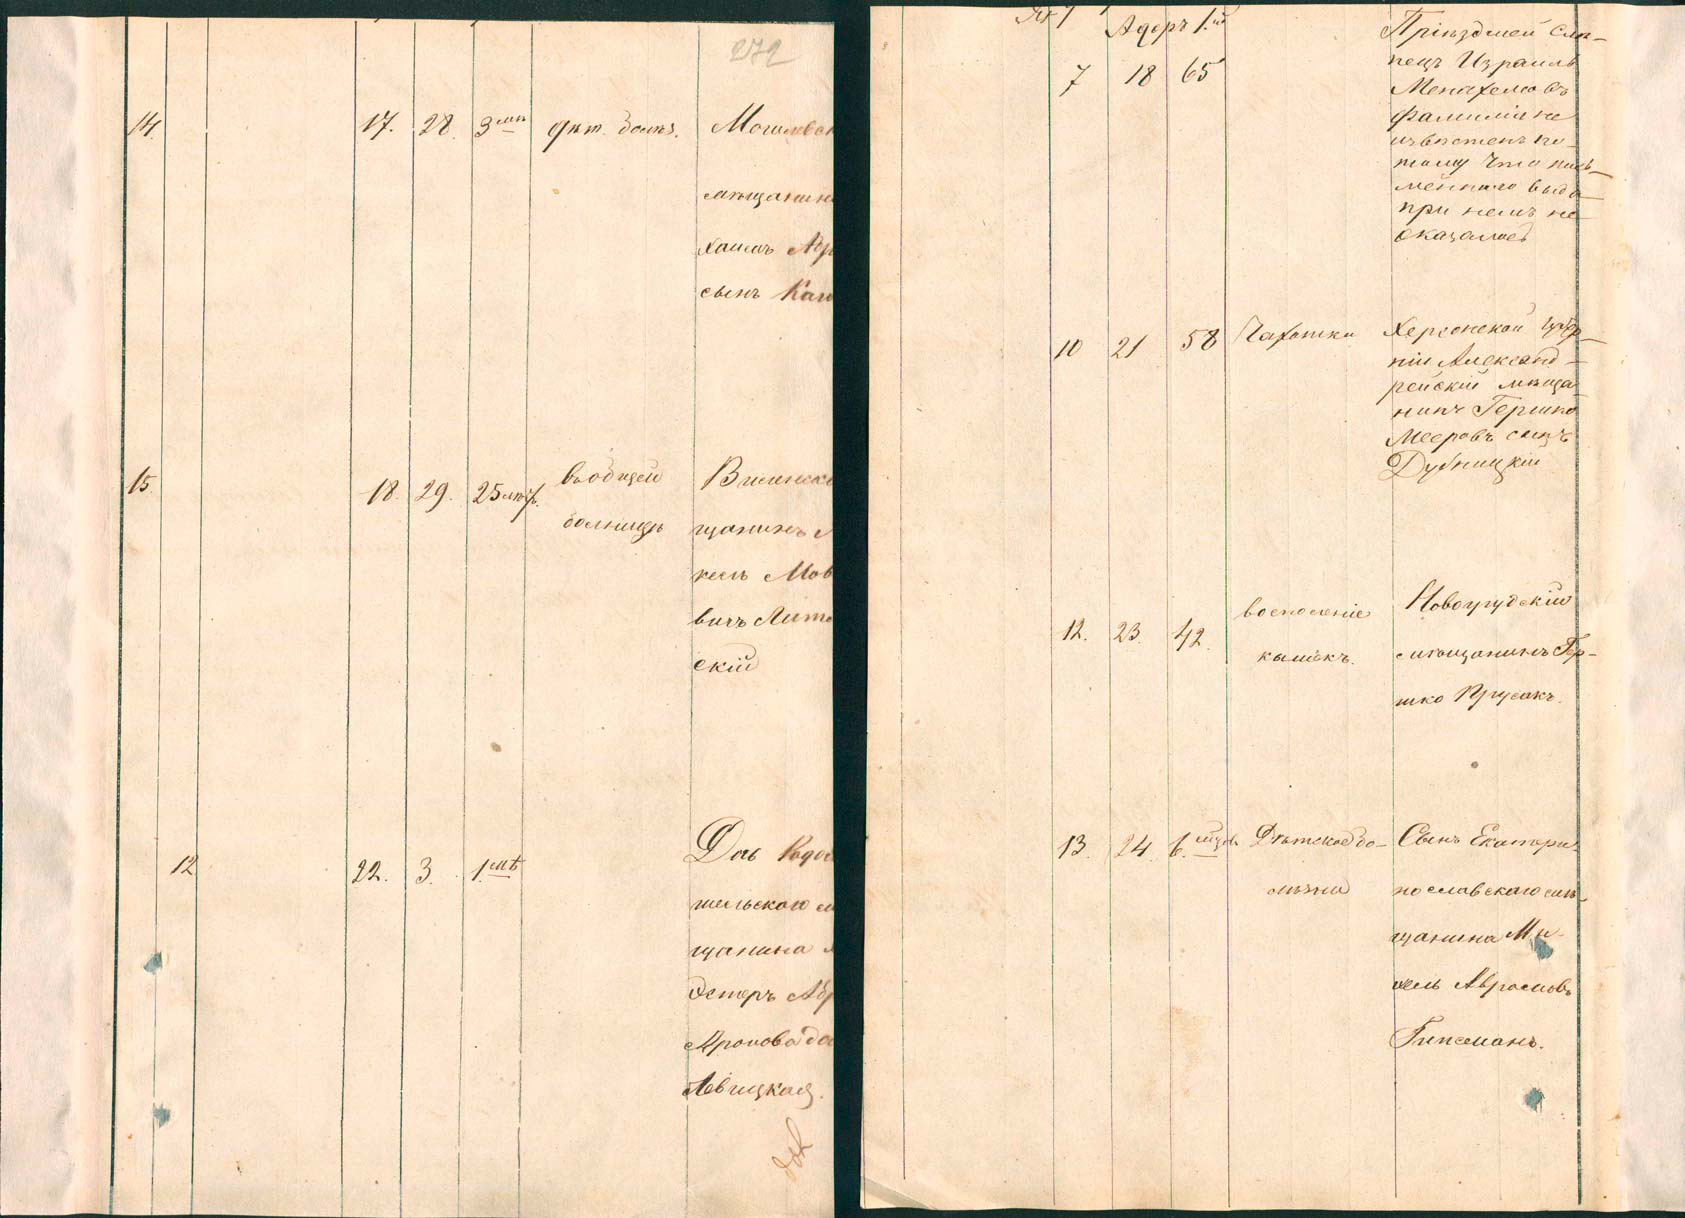 272
14. 17. 28. 3 мѣ. дѣт. болѣз. Могилевск
мѣщанинъ
Хаимъ Абр
сынъ Каг
15. 18. 29. 25 лѣтъ. въ общей Виленск
больницѣ щанинъ
кель Мов
вичъ Лито
скій
12 22. 3. 1 мѣ. Дочь
шельскаго м
щанина
Эстеръ Абр
Аронова до
Левицкая.
Адоръ 1.й
7 18 65 Пріѣздшей слѣ-
пецъ Израиль
Менахемовъ
фамиліи не
извѣстенъ по-
тому что пись-
меннаго вида
при немъ не
оказалось
10 21 58 Чахотки Херсонской губер-
ніи Александ-
рейскій мѣща
нинъ Гершко
Мееровъ сынъ
Дубницкій
12. 23. 42. восполеніе Новогрудскій
кышекъ. мѣщанинъ Гер-
шко Прусакъ.
13. 24. 6. мѣсяц. Дѣтской бо- Сынъ Екатери-
лѣзни нославскаго мѣ-
щанина Ми-
хель Аврамовъ
Гипсманъ.